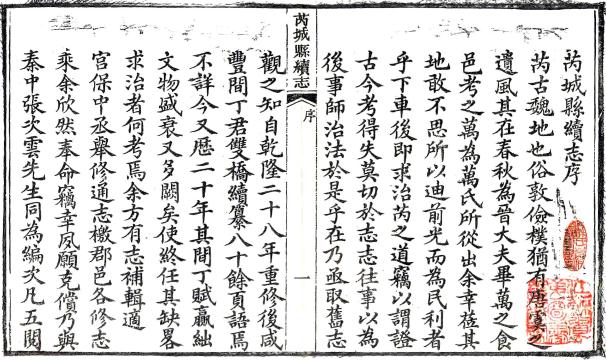 芮城縣續志序
芮古魏地也俗敦儉樸猶有唐虞之
遺風其在春秋為晉大夫畢萬之食
邑考之萬為萬氏所從出余幸莅其
地敢不思所以迪前光而為民利者
乎下車後即求治芮之道竊以謂證
古今考得失莫切於志志往事以為
後事師治法於是乎在乃亟取舊志
芮城縣續志
序
一
觀之知自乾隆二十八年重修後咸
豐間丁君雙橋續纂八十餘頁語焉
不詳今又歷二十年其間丁賦贏絀
文物盛衰又多闕矣使終任其缺畧
求治者何考焉余方有志補輯適
宮保中丞舉修通志檄郡邑各修志
乘余欣然奉命竊幸夙願克償乃與
秦中張次雲先生同為編次凡五閱